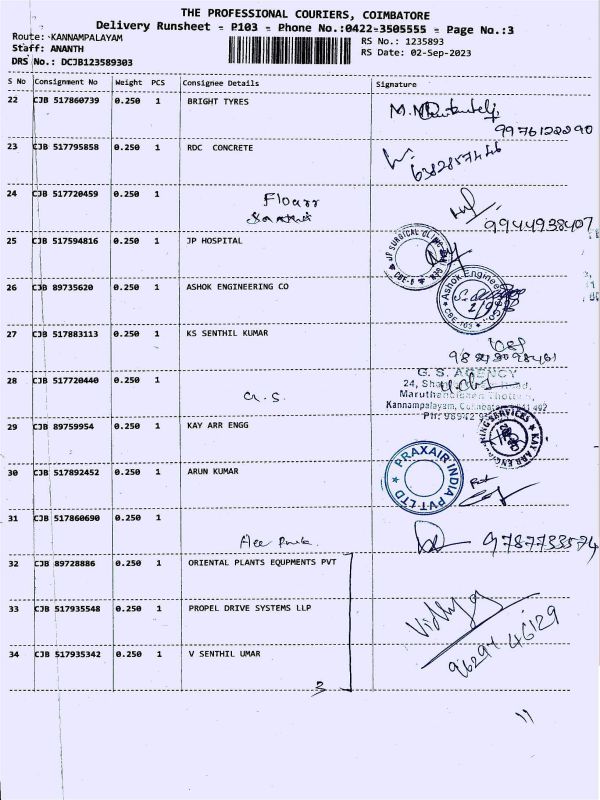 THE PROFESSIONAL COURIERS, COIMBATORE
Delivery Runsheet - P103 - Phone No.:0422-3505555 - Page No.:3
Route: KANNAMPALAYAM
RS No.: 1235893
Staff: ANANTH
RS Date: 02-Sep-2023
DRS No.: DCJB123589303
S No Consignment No Weight PCS Consignee Details Signature
22 CJB 517860739 0.250 1 BRIGHT TYRES
9976122290
23 CJB 517795858 0.250 1 RDC CONCRETE
6382857446
24 CJB 517720459 0.250 1
9944938407
25 CJB 517594816 0.250 1 JP HOSPITAL
26 CJB 89735620 0.250 1 ASHOK ENGINEERING CO
Ashok Engineering Co.
27 CJB 517883113 0.250 1 KS SENTHIL KUMAR
28 CJB 517720440 0.250 1 G.S.
G.S. AGENCY
24,
Kannampalayam,
29 CJB 89759954 0.250 1 KAY ARR ENGG
30 CJB 517892452 0.250 1 ARUN KUMAR
PRAXAIR INDIA PVT LTD
31 CJB 517860690 0.250 1
9787733574
32 CJB 89728886 0.250 1 ORIENTAL PLANTS EQUPMENTS PVT
33 CJB 517935548 0.250 1 PROPEL DRIVE SYSTEMS LLP
Vidhya
34 CJB 517935342 0.250 1 V SENTHIL UMAR
96294 46129
3
11